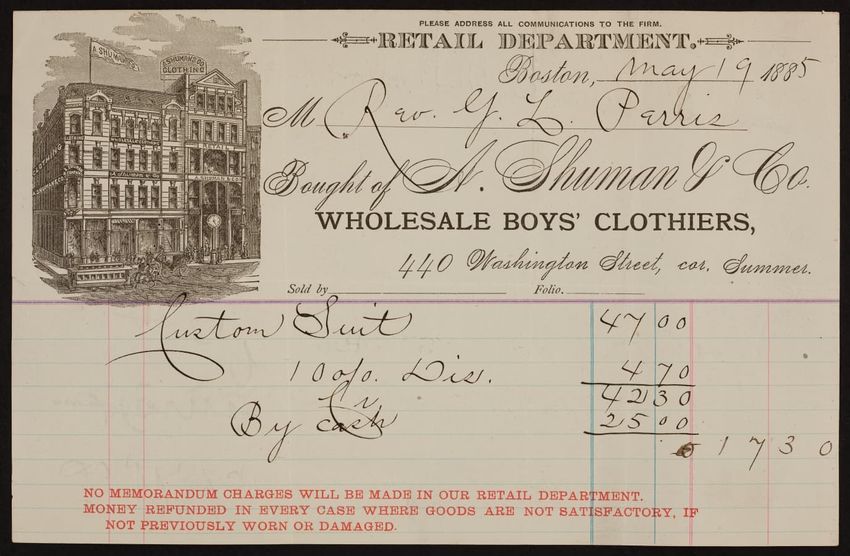 PLEASE ADDRESS ALL COMMUNICATIONS TO THE FIRM.
RETAIL DEPARTMENT.
A. SHUMAN & CO.
A. SHUMAN & CO.
CLOTHING
RETAIL
Boston, May 19 1885
M Rev. G. L. Perris
Bought of A. Shuman & Co.
WHOLESALE BOYS' CLOTHIERS,
440 Washington Street, cor. Summer.
Sold by Folio.
Custom Suit 47 00
10 o/o. Dis. 4 70
42 30
Cr
By cash 25 00
17 30
NO MEMORANDUM CHARGES WILL BE MADE IN OUR RETAIL DEPARTMENT.
MONEY REFUNDED IN EVERY CASE WHERE GOODS ARE NOT SATISFACTORY, IF
NOT PREVIOUSLY WORN OR DAMAGED.